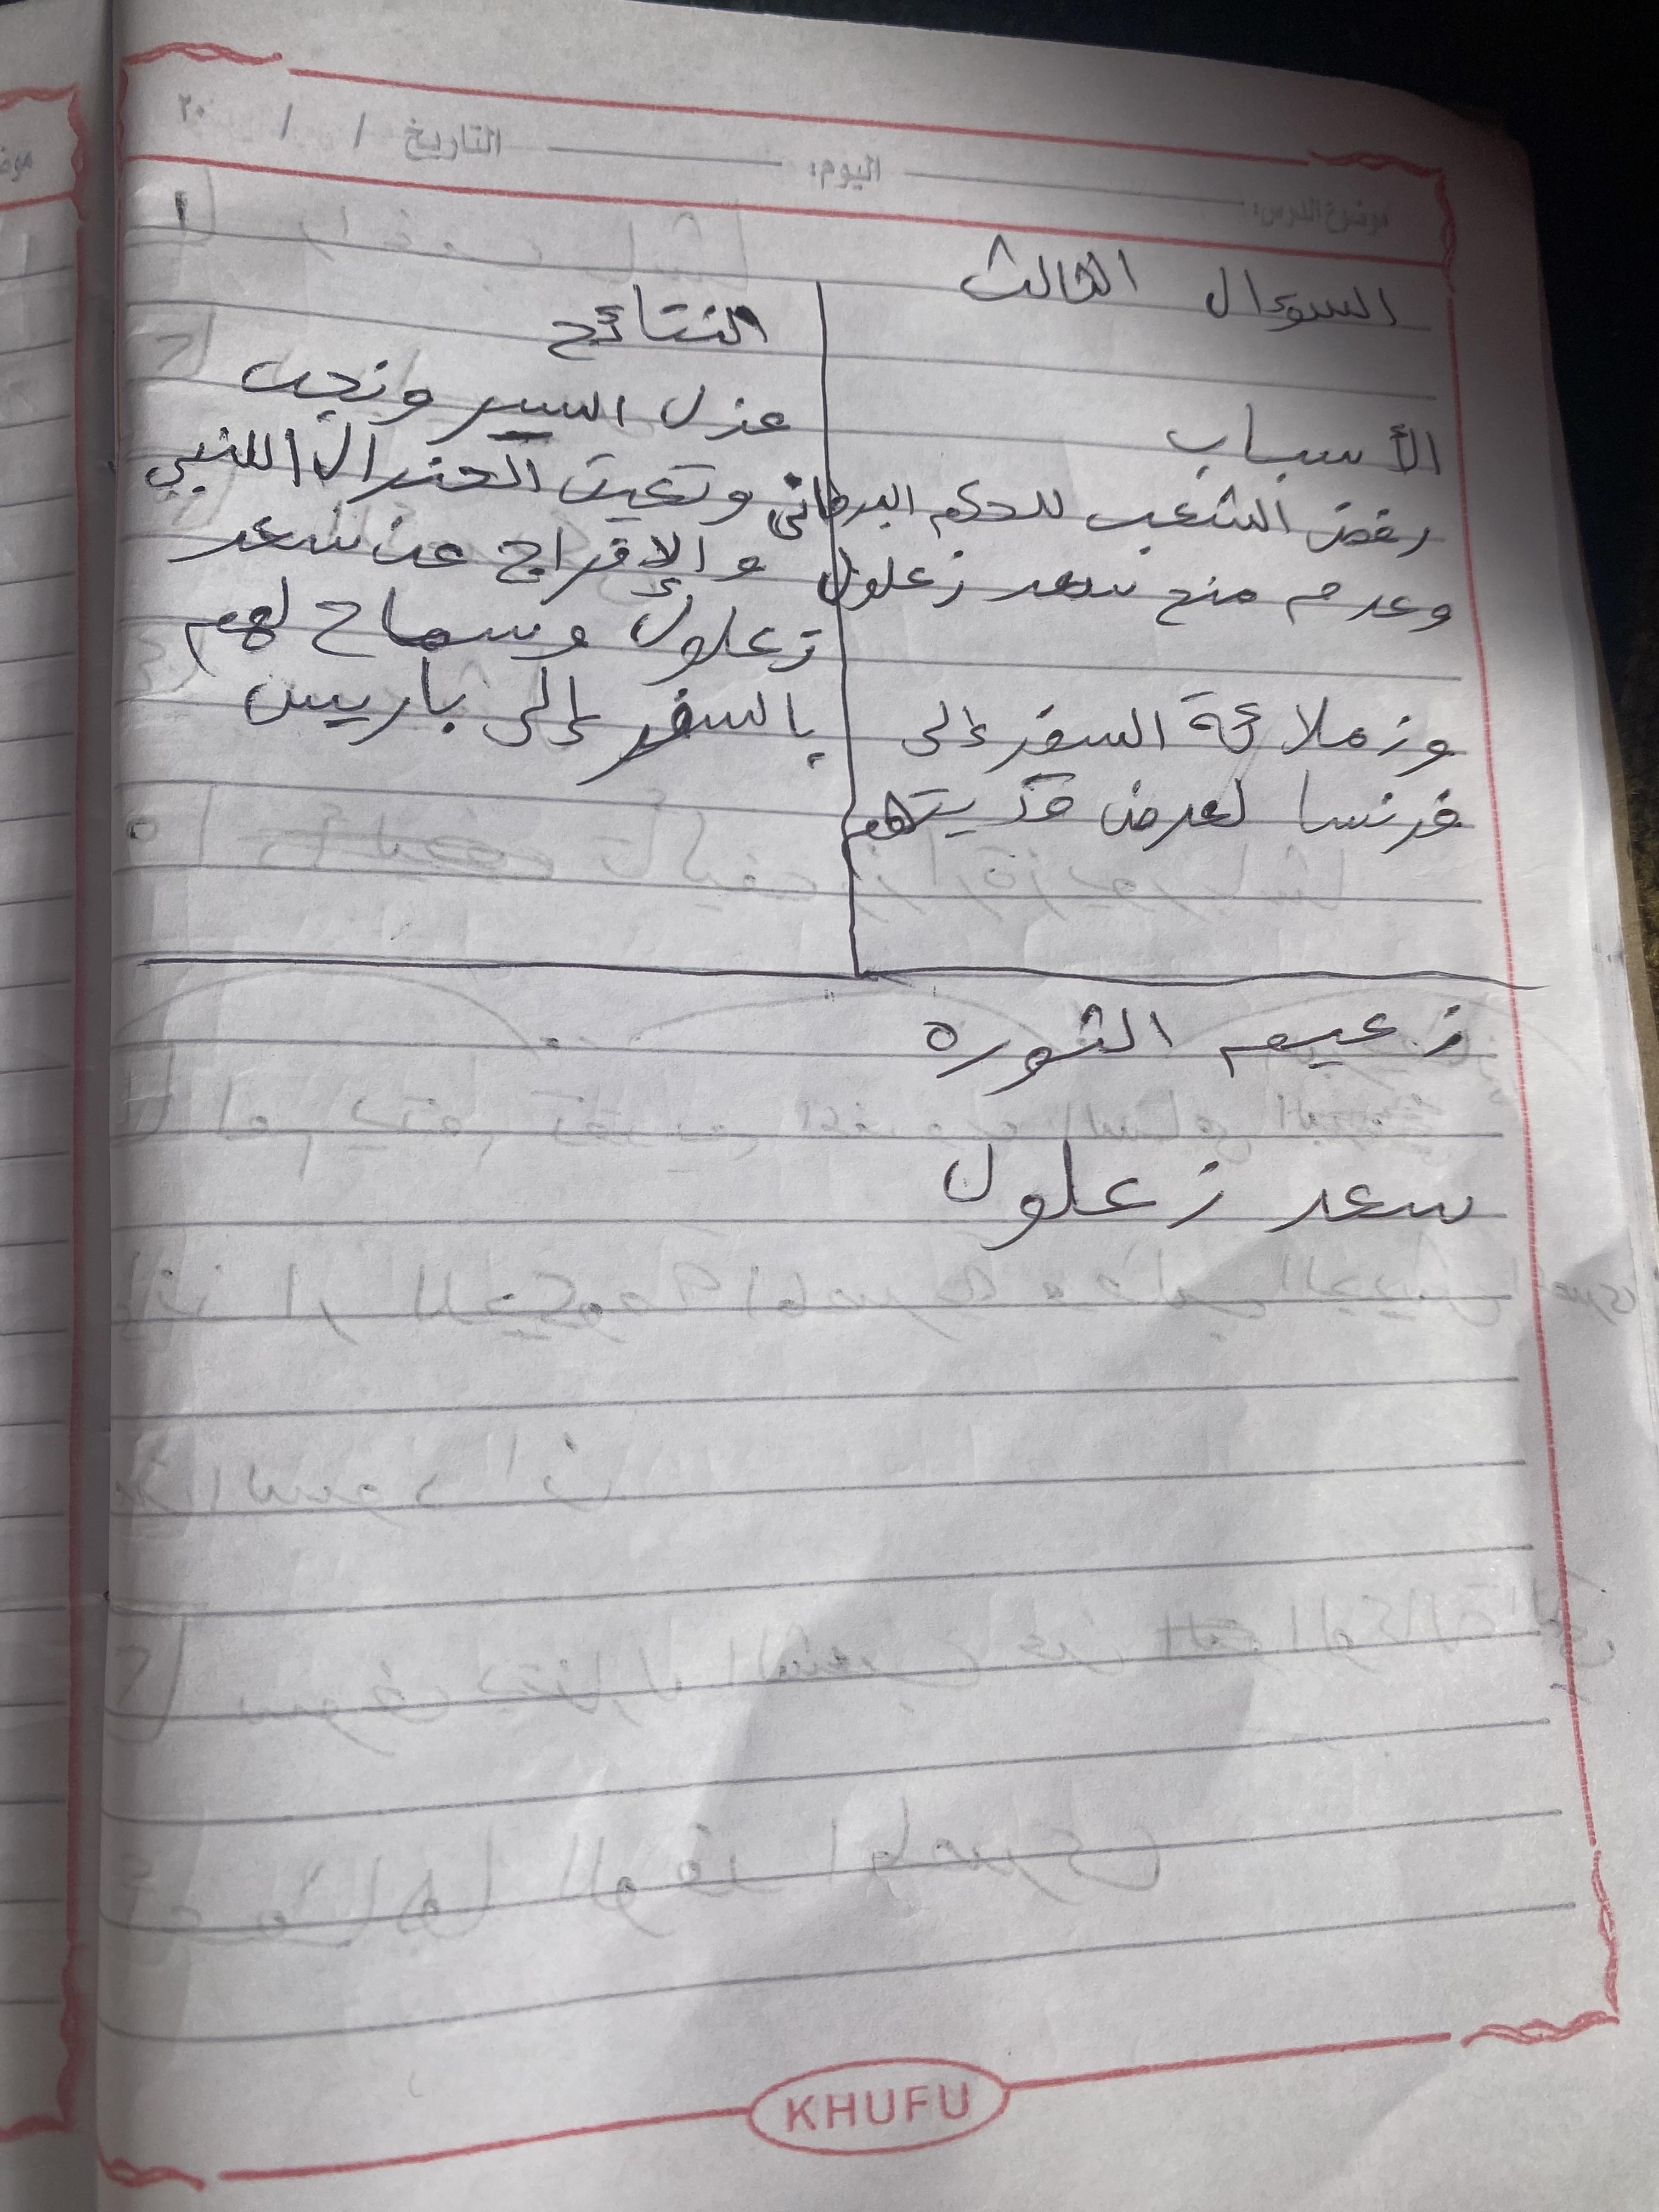 موضوع الدرس: اليوم: التاريخ / / ٢٠
السوءال الثالث
الأسباب
رفض الشعب للحكم البرطانى
وعدم منح سعد زعلول
وزملائة السفر إلى
فرنسا لعرض قذيتهم
النتائج
عزل السير ونجت
وتعين الجنرال اللنبي
والإفراج عن سعد
زعلول وسماح لهم
بالسفر إلى باريس
زعيم الثوره
سعد زعلول
KHUFU